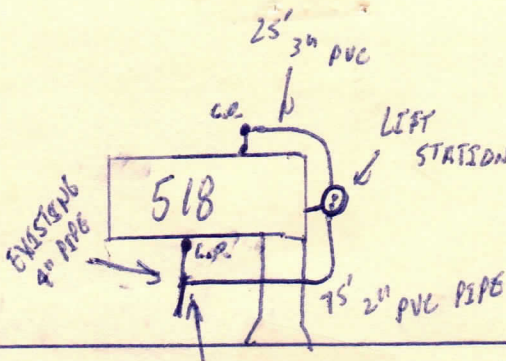 25' 3" PVC
C.O.
LIFT
STATION
518
EXISTING
4" PIPE
C.O.
75' 2" PVC PIPE